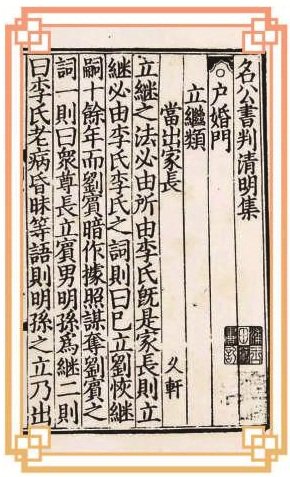 名公書判清明集
户婚門
立繼類
當出家長
乂軒
立繼之法必由所由李氏旣是家長則立
繼必由李氏李氏之詞則曰已立劉恢繼
嗣十餘年而劉賓暗作據照謀奪劉賓之
詞一則曰衆尊長立賓男明孫爲繼二則
曰李氏老病昏昧等語則明孫之立乃出